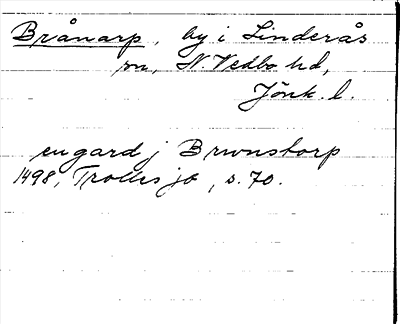 Brånarp, by i Linderås
sn, N. Vedbo hd,
Jönk. l.
en gard j Brwnstorp
1498, Trolles jb, s. 70.